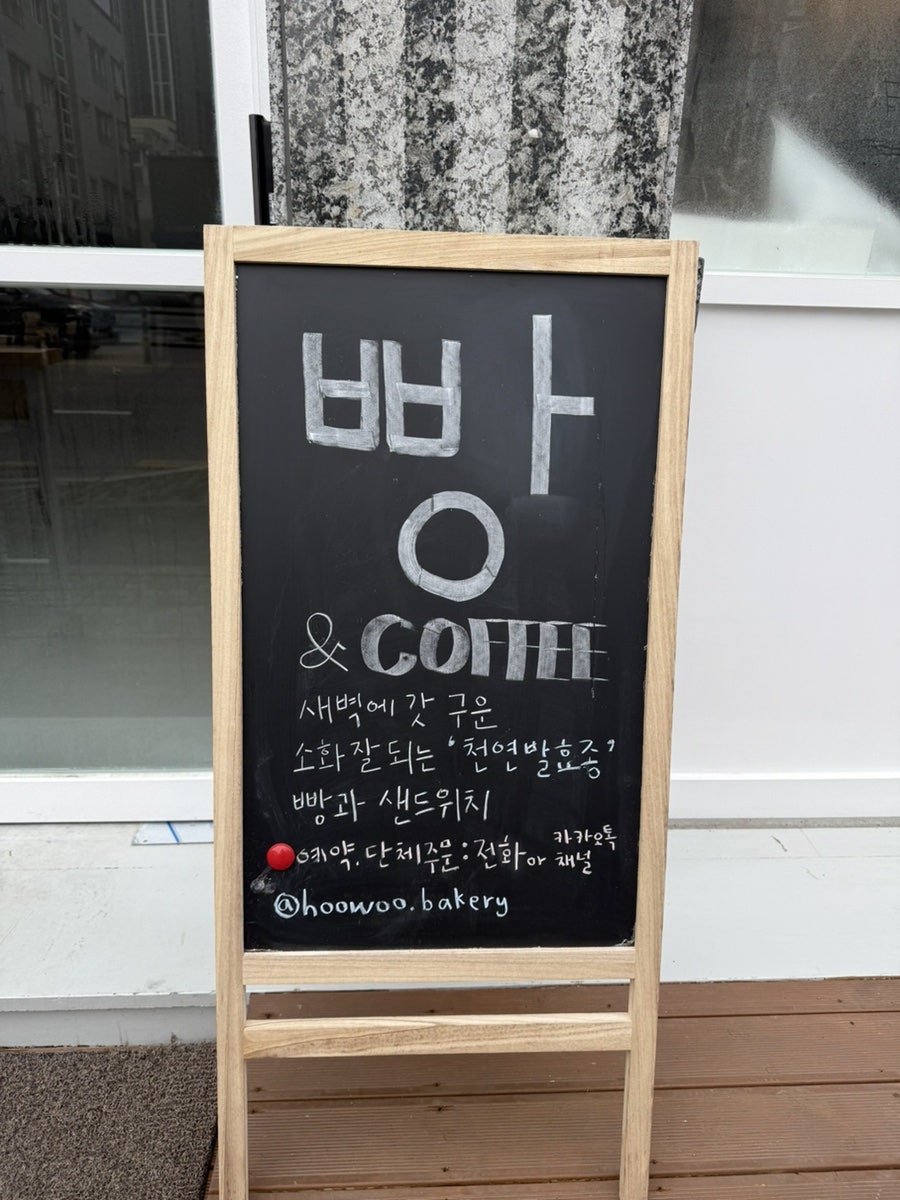 빵
& COFFEE
새벽에 갓 구운
소화 잘 되는 '천연발효종'
빵과 샌드위치
예약.단체주문:전화 or 카카오톡 채널
@hoowoo.bakery